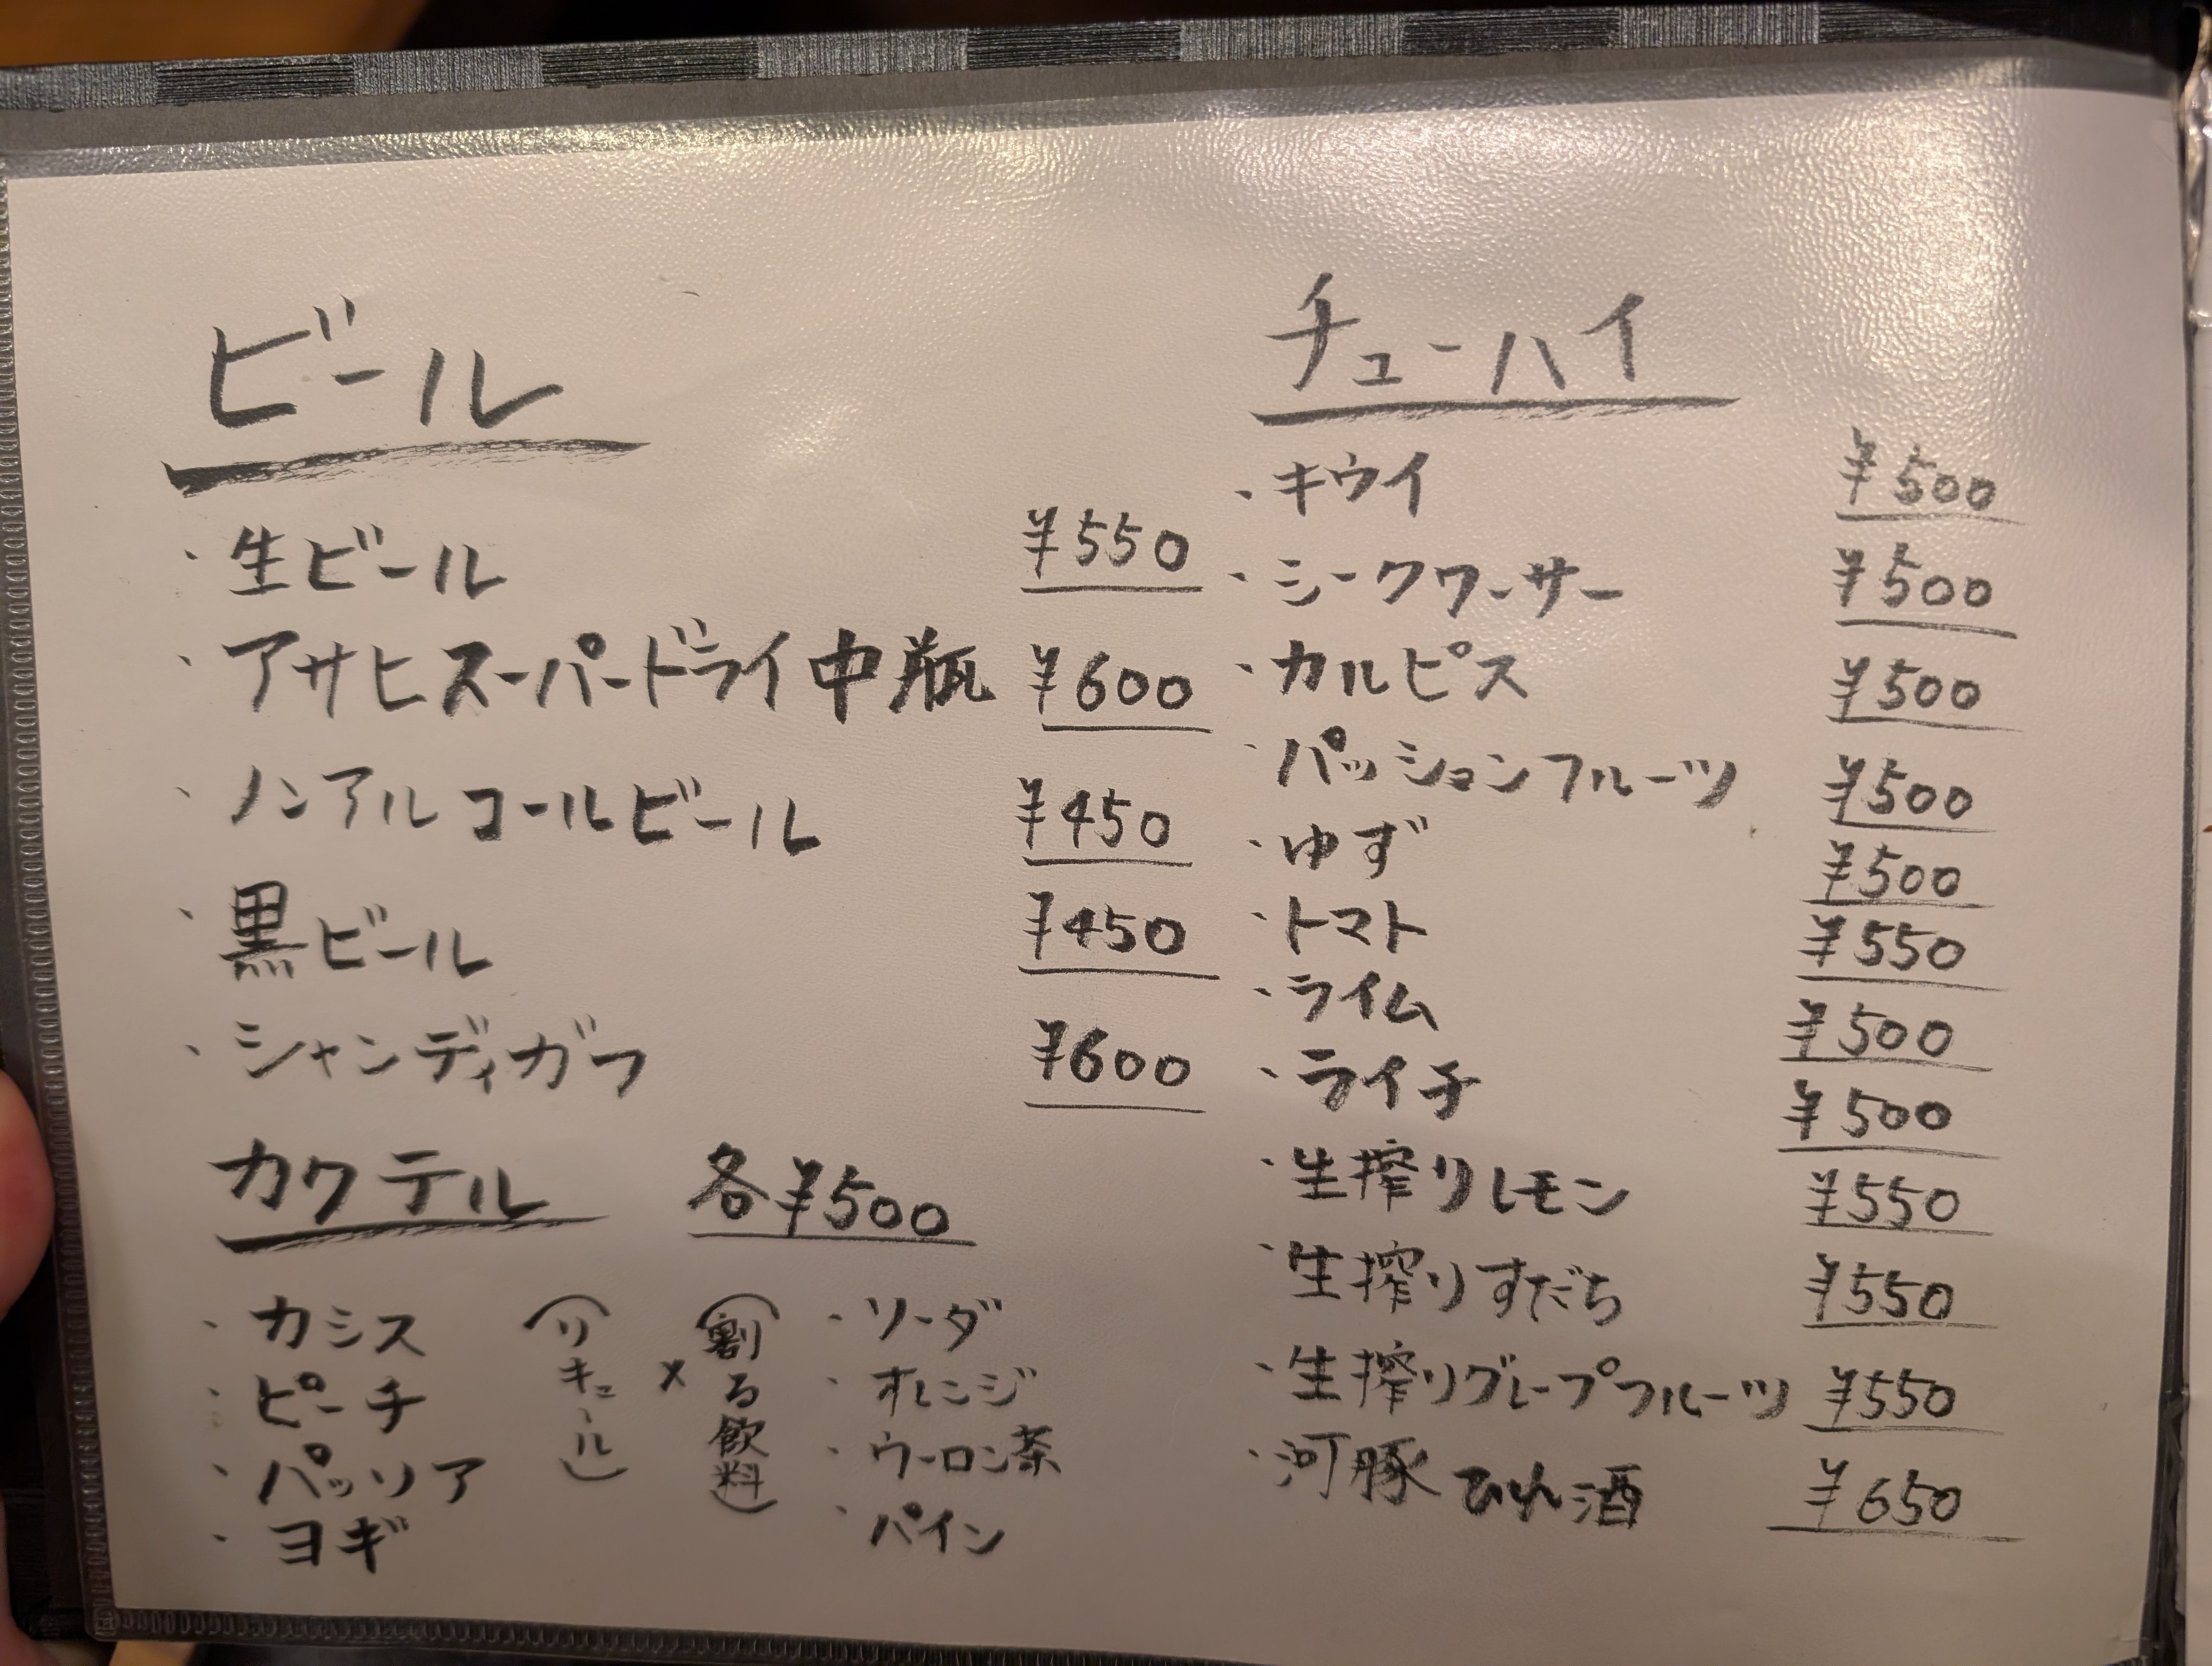 ビール
・生ビール ¥550
・アサヒスーパードライ中瓶 ¥600
・ノンアルコールビール ¥450
・黒ビール ¥450
・シャンディガフ ¥600
カクテル 各¥500
・カシス
・ピーチ
・パッソア
・ヨギ
(リキュール)
×
(割る飲料)
・ソーダ
・オレンジ
・ウーロン茶
・パイン
チューハイ
・キウイ ¥500
・シークワーサー ¥500
・カルピス ¥500
・パッションフルーツ ¥500
・ゆず ¥500
・トマト ¥550
・ライム ¥500
・ライチ ¥500
・生搾りレモン ¥550
・生搾りすだち ¥550
・生搾りグレープフルーツ ¥550
・河豚ひれ酒 ¥650